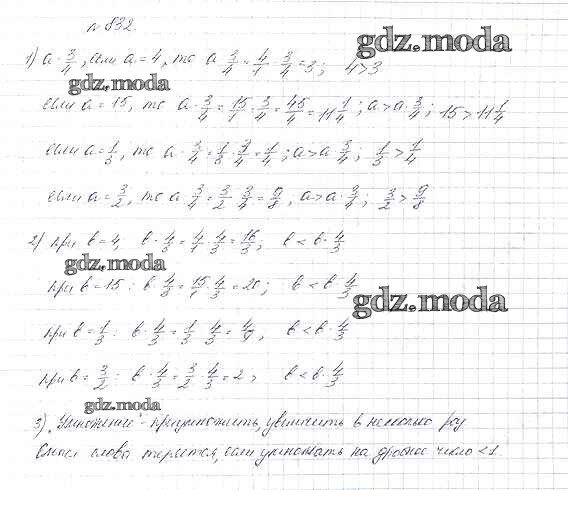 № 832.
gdz.moda
1) a · 3/4, если a = 4, то a 3/4 = 4/1 · 3/4 = 3; 4 > 3
gdz.moda
если a = 15, то a · 3/4 = 15/1 · 3/4 = 45/4 = 11 1/4; a > a · 3/4; 15 > 11 1/4
если a = 1/3, то a · 3/4 = 1/3 · 3/4 = 1/4; a > a · 3/4; 1/3 > 1/4
если a = 3/2, то a · 3/4 = 3/2 · 3/4 = 9/8, a > a · 3/4; 3/2 > 9/8
2) при b = 4, b · 4/3 = 4/1 · 4/3 = 16/3; b < b · 4/3
gdz.moda
при b = 15: b · 4/3 = 15/1 · 4/3 = 20; b < b · 4/3
gdz.moda
при b = 1/3: b · 4/3 = 1/3 · 4/3 = 4/9, b < b · 4/3
при b = 3/2: b · 4/3 = 3/2 · 4/3 = 2, b < b · 4/3
gdz.moda
3) "Умножение - приумножить, увеличить в несколько раз
Смысл слова теряется, если умножать на дробное число < 1.